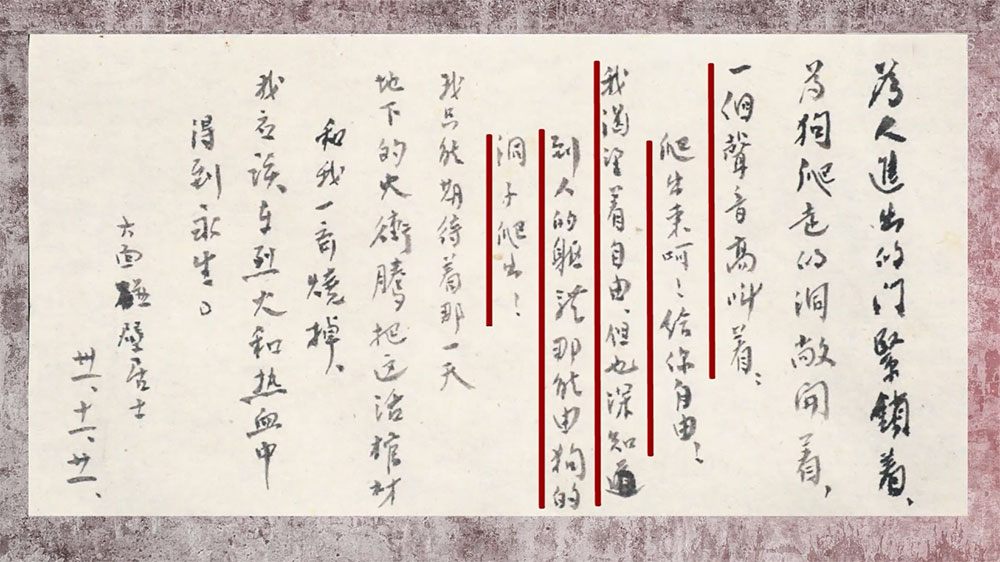 為人進出的门緊鎖着、
為狗爬走的洞敞開着，
一個聲音高叫着：
爬出來呵！给你自由！
我渴望着自由、但也深知道
到人的軀體那能由狗的
洞子爬出！
我只能期待着那一天
地下的火衝騰把这活棺材
和我一齊燒掉、
我应该在烈火和热血中
得到永生。
六面碰壁居士
卅一、十一、廿一、